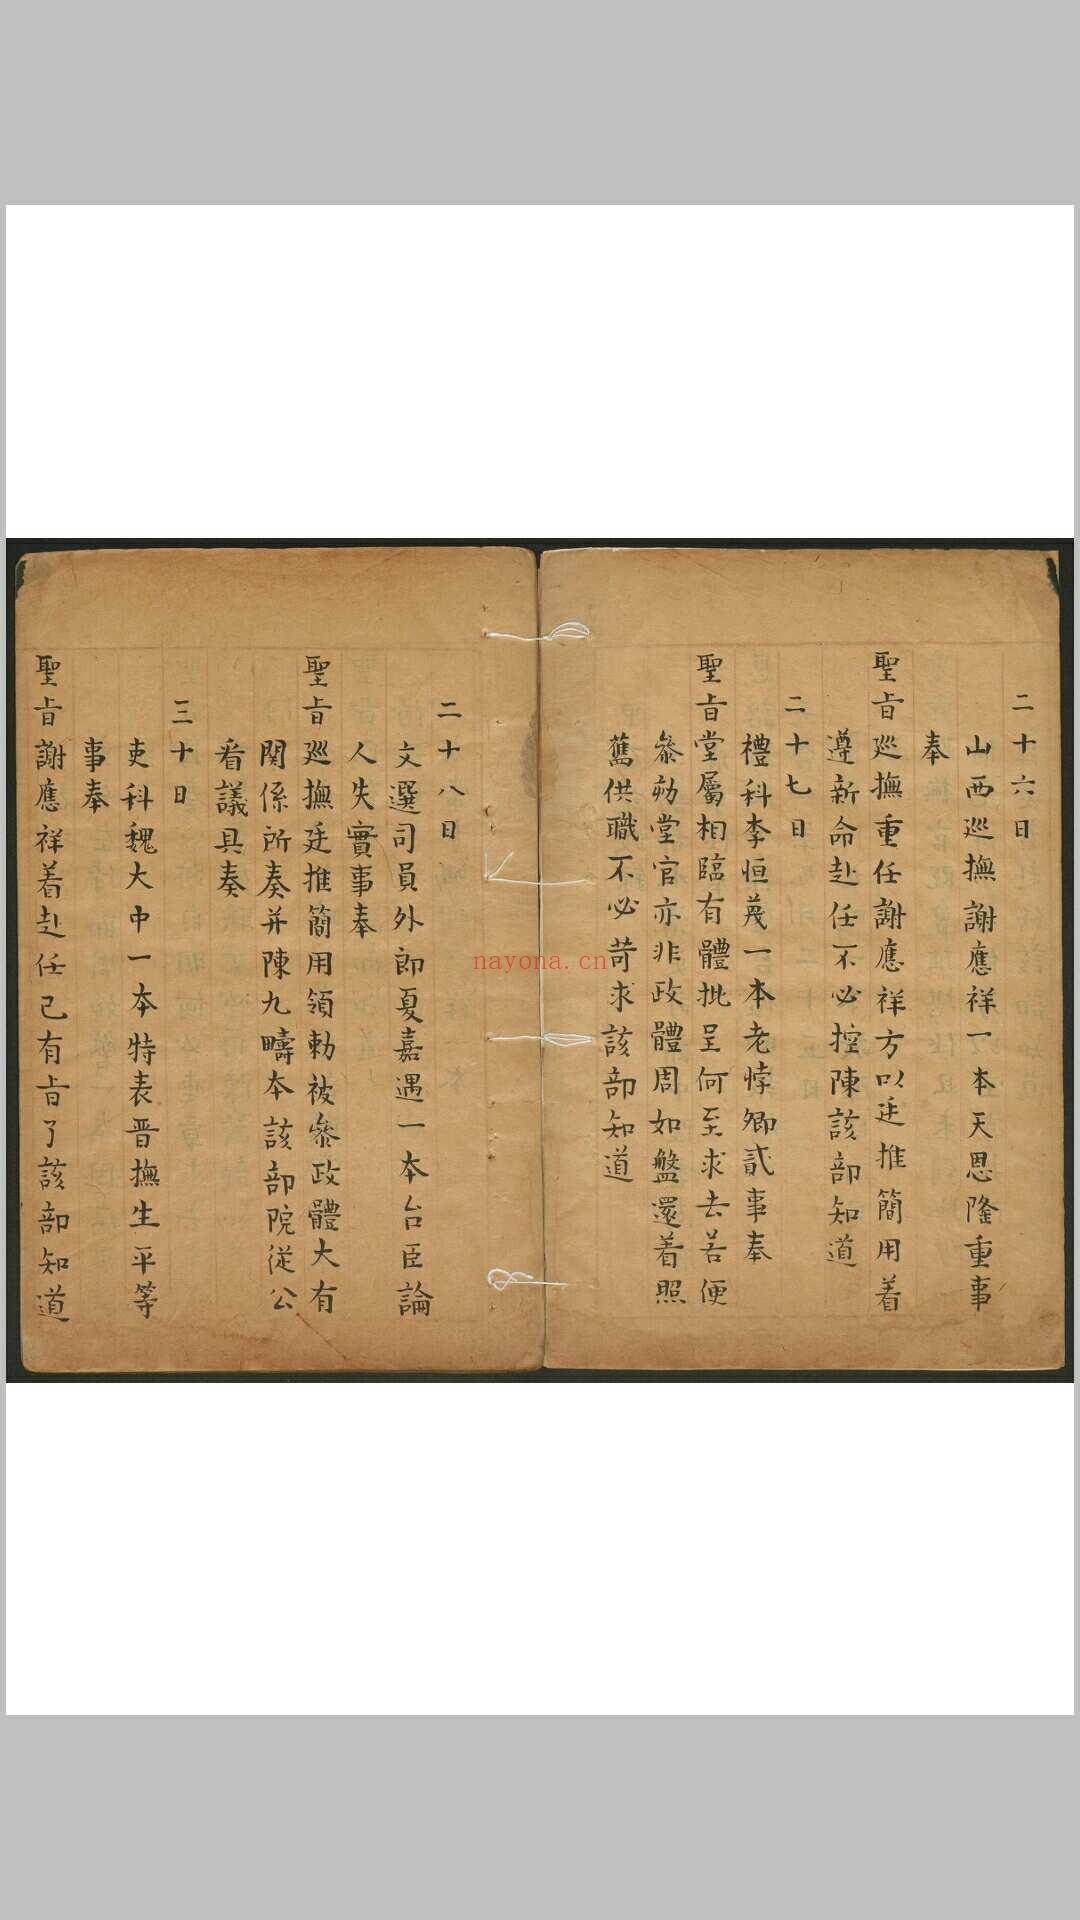 二十六日
山西巡撫謝應祥一本天恩隆重事
奉
聖旨巡撫重任謝應祥方以廷推簡用着
遵新命赴任不必控陳該部知道
二十七日
禮科李恒茂一本老悖卿貳事奉
聖旨堂屬相臨有體批呈何至求去若便
叅劾堂官亦非政體周如盤還着照
舊供職不必苛求該部知道
二十八日
文選司員外郎夏嘉遇一本台臣論
人失實事奉
聖旨巡撫廷推簡用領勅被叅政體大有
関係所奏并陳九疇本該部院從公
看議具奏
三十日
吏科魏大中一本特表晋撫生平等
事奉
聖旨謝應祥着赴任已有旨了該部知道
nayona.cn